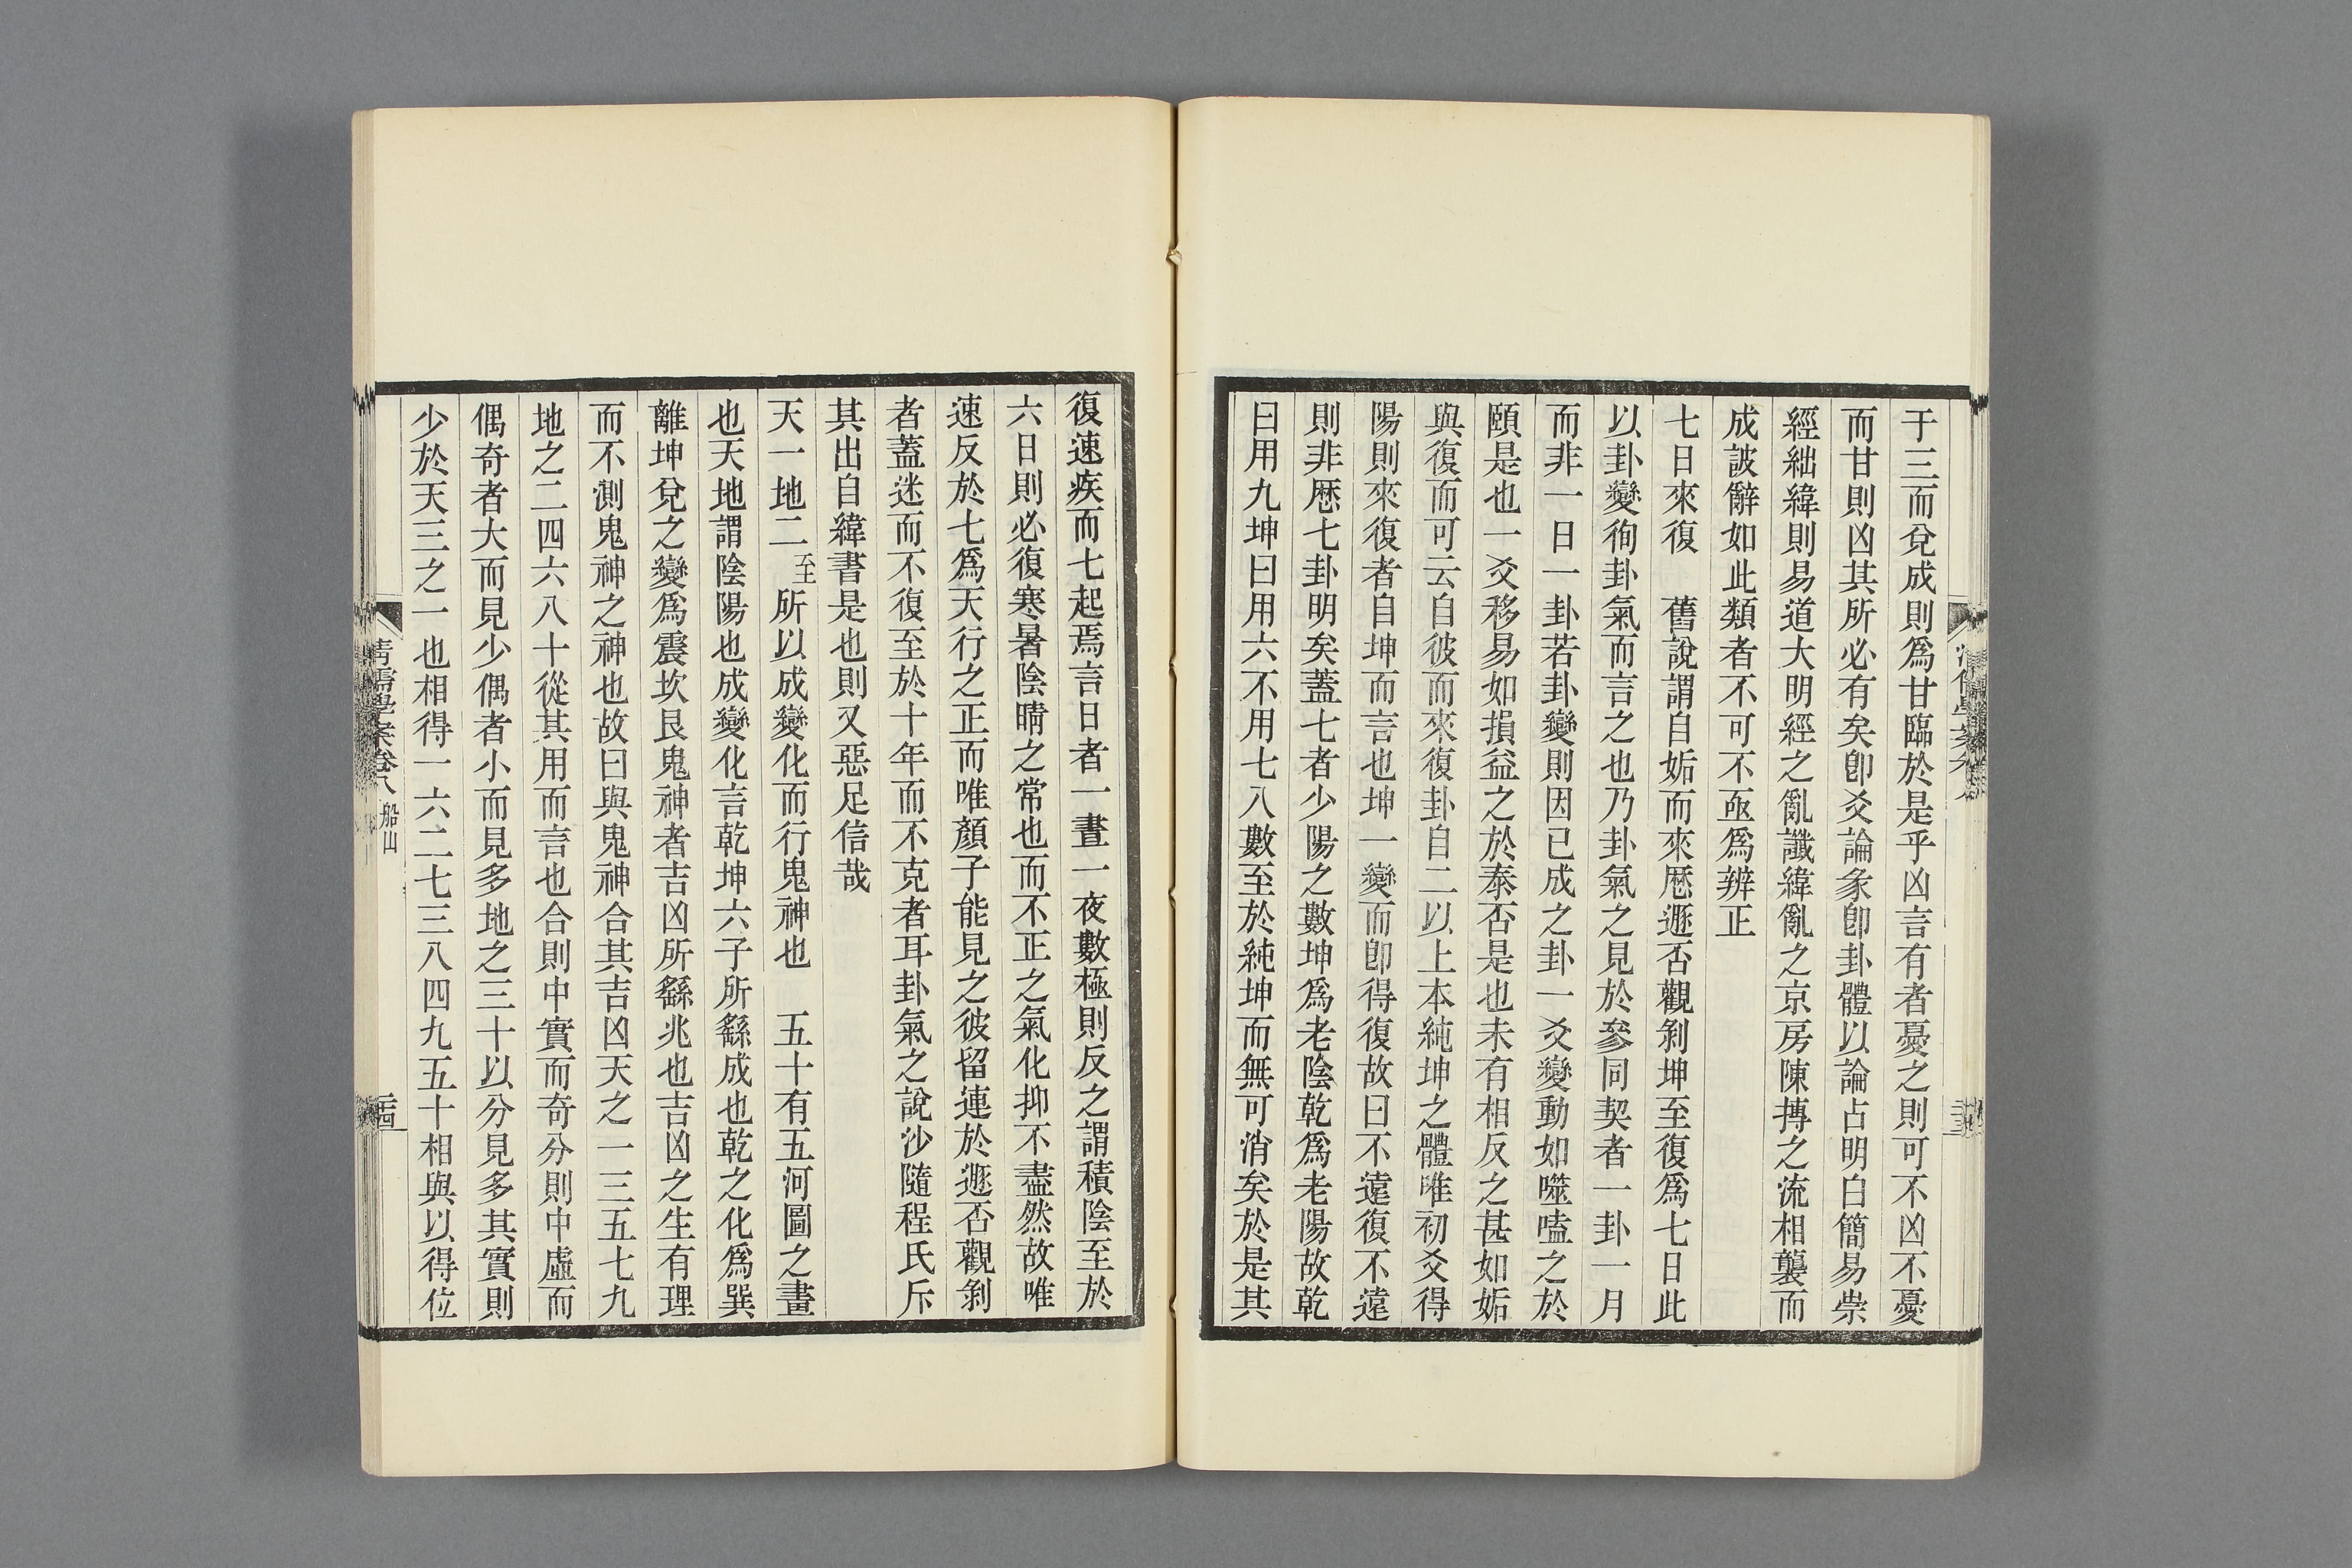 于三而兌成則爲甘臨於是乎凶言有者憂之則可不凶不憂
而甘則凶其所必有矣卽爻論彖卽卦體以論占明白簡易祟
經絀緯則易道大明經之亂讖緯亂之京房陳摶之流相襲而
成詖辭如此類者不可不亟爲辨正
七日來復　舊說謂自姤而來歷遯否觀剝坤至復爲七日此
以卦變徇卦氣而言之也乃卦氣之見於參同契者一卦一月
而非一日一卦若卦變則因已成之卦一爻變動如噬嗑之於
頤是也一爻移易如損益之於泰否是也未有相反之甚如姤
與復而可云自彼而來復卦自二以上本純坤之體唯初爻得
陽則來復者自坤而言也坤一變而卽得復故曰不遠復不遠
則非歷七卦明矣蓋七者少陽之數坤爲老陰乾爲老陽故乾
曰用九坤曰用六不用七八數至於純坤而無可消矣於是其
復速疾而七起焉言日者一晝一夜數極則反之謂積陰至於
六日則必復寒暑陰晴之常也而不正之氣化抑不盡然故唯
速反於七爲天行之正而唯顏子能見之彼留連於遯否觀剝
者蓋迷而不復至於十年而不克者耳卦氣之說沙隨程氏斥
其出自緯書是也則又惡足信哉
天一地二至所以成變化而行鬼神也　五十有五河圖之畫
也天地謂陰陽也成變化言乾坤六子所繇成也乾之化爲巽
離坤兌之變爲震坎艮鬼神者吉凶所繇兆也吉凶之生有理
而不測鬼神之神也故曰與鬼神合其吉凶天之一三五七九
地之二四六八十從其用而言也合則中實而奇分則中虛而
偶奇者大而見少偶者小而見多地之三十以分見多其實則
少於天三之一也相得一六二七三八四九五十相與以得位
清儒學案卷八 船山